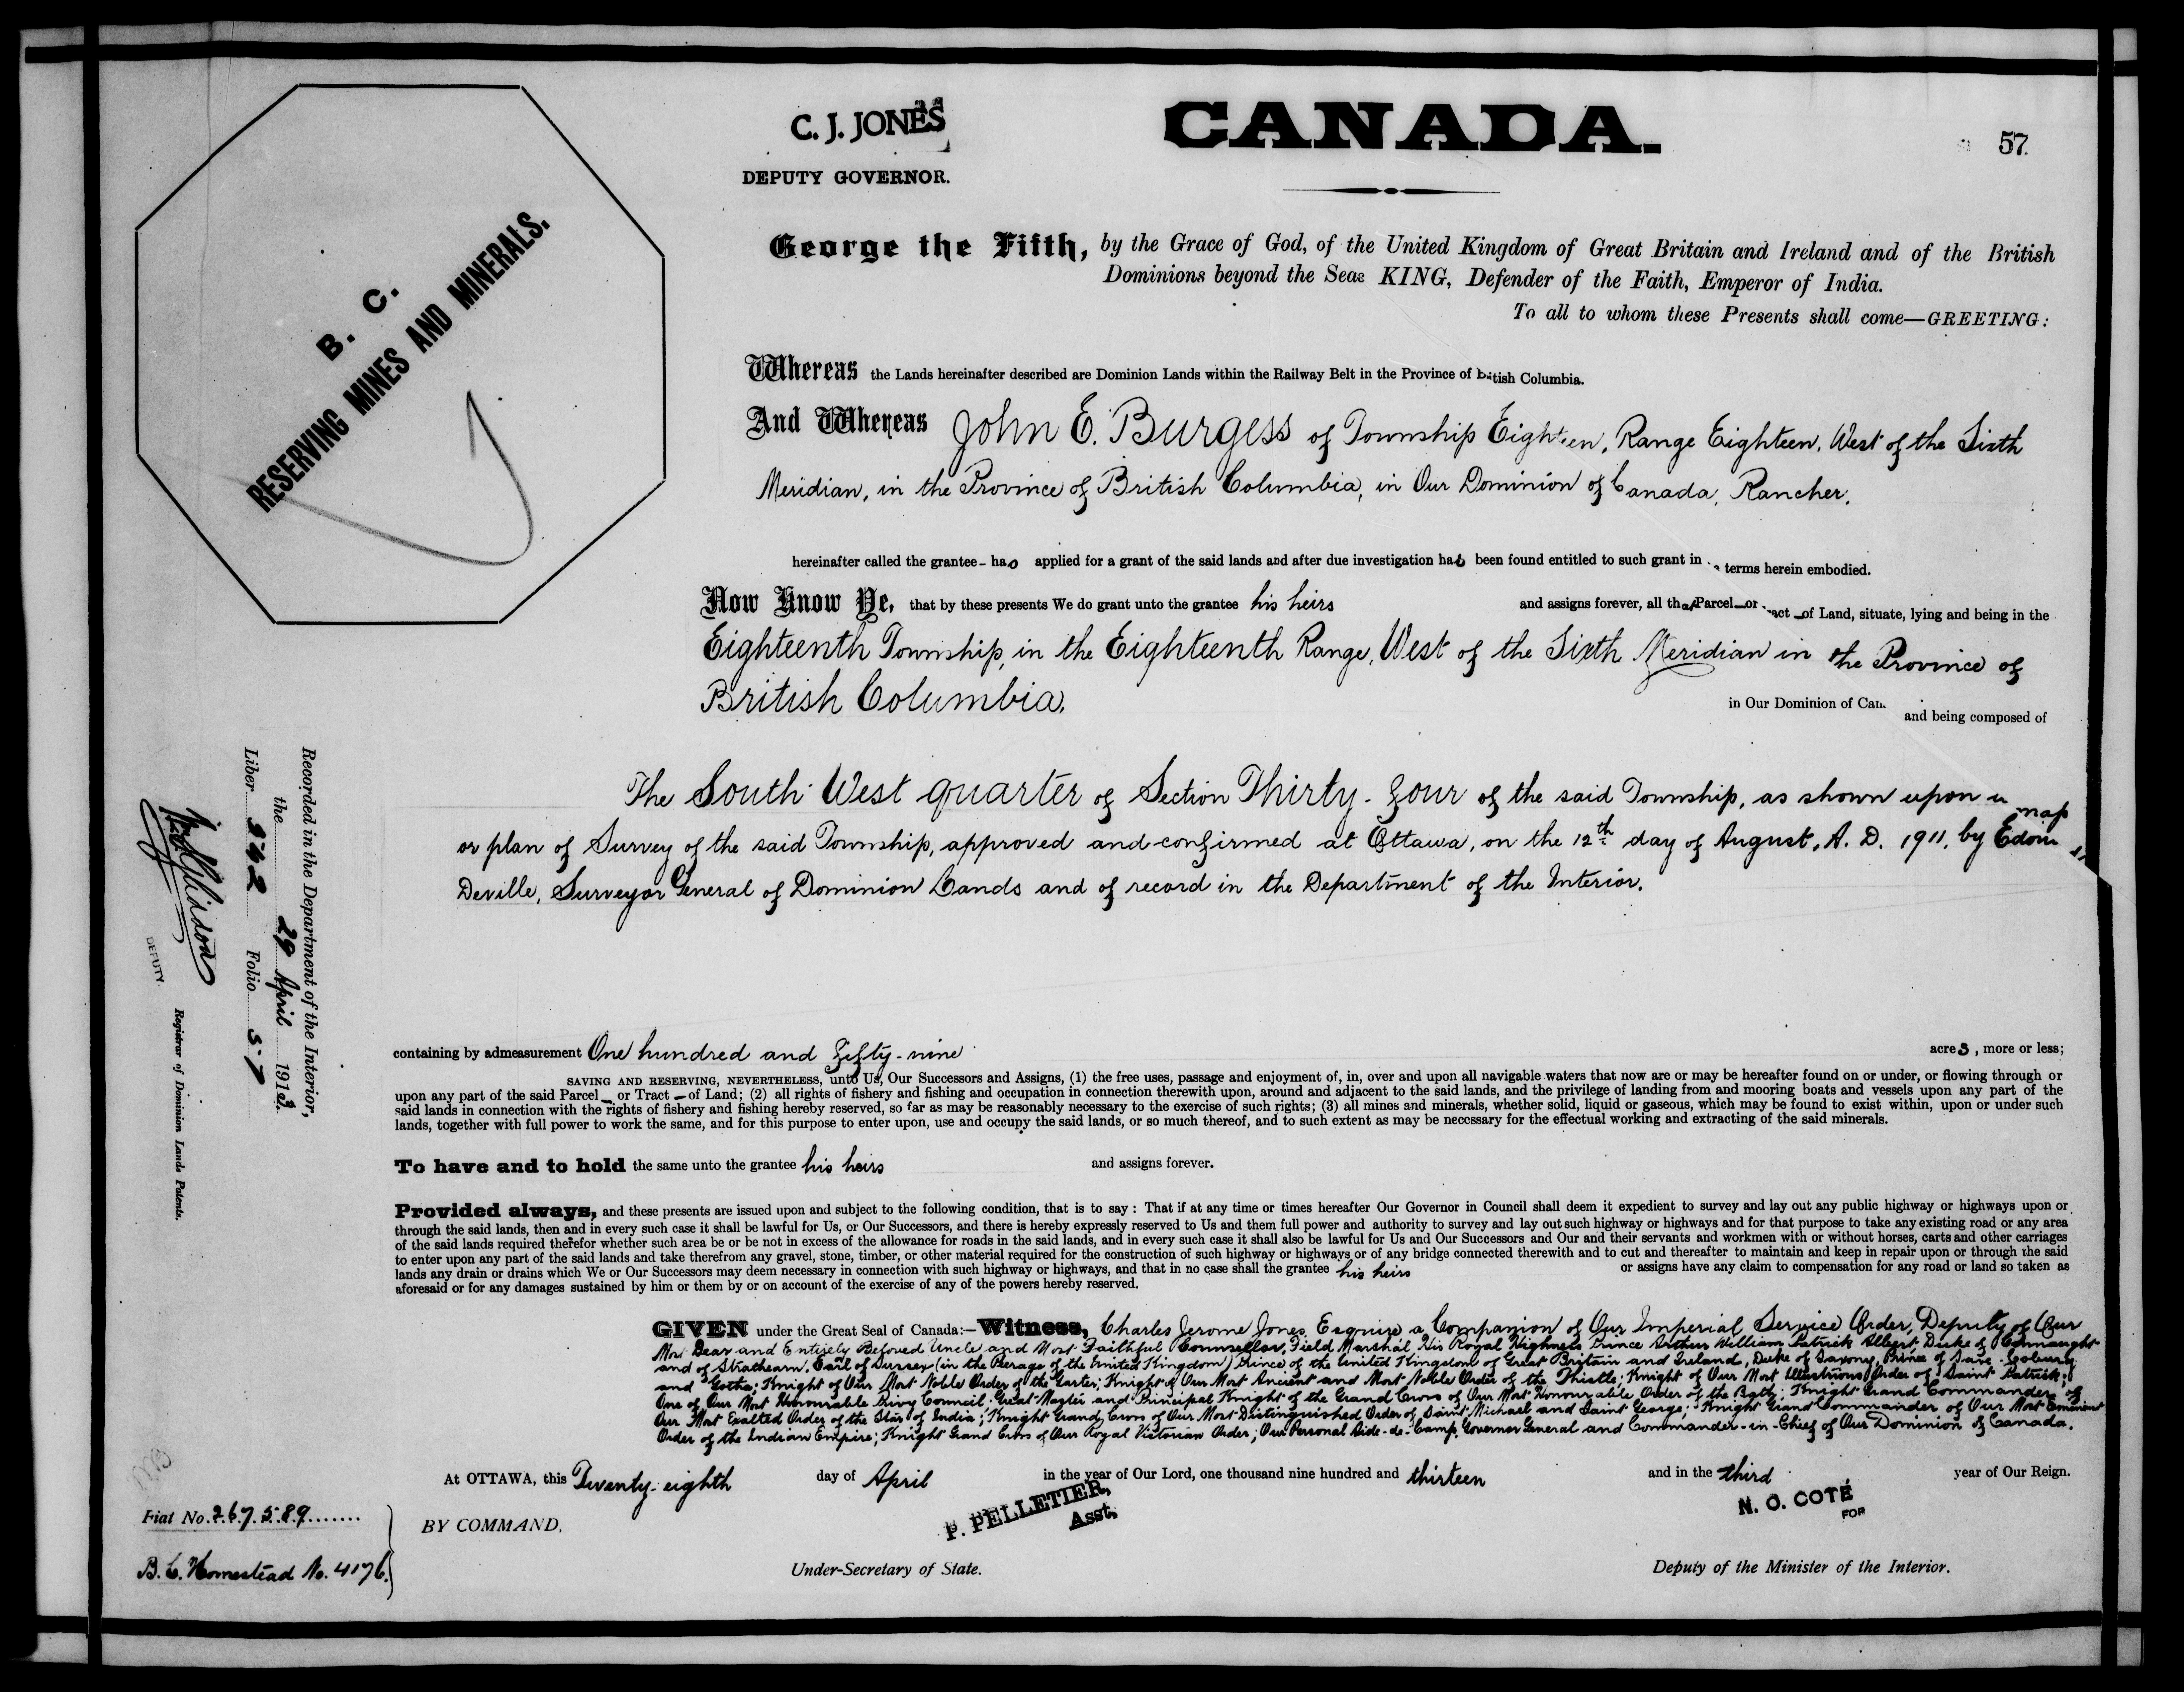 C. J. JONES
DEPUTY GOVERNOR.
CANADA.
57
B. C.
RESERVING MINES AND MINERALS.
George the Fifth, by the Grace of God, of the United Kingdom of Great Britain and Ireland and of the British
Dominions beyond the Seas KING, Defender of the Faith, Emperor of India.
To all to whom these Presents shall come—GREETING:
Whereas the Lands hereinafter described are Dominion Lands within the Railway Belt in the Province of British Columbia.
And Whereas John E. Burgess of Township Eighteen, Range Eighteen, West of the Sixth
Meridian, in the Province of British Columbia, in Our Dominion of Canada, Rancher,
hereinafter called the grantee - has applied for a grant of the said lands and after due investigation has been found entitled to such grant in terms herein embodied.
Now Know Ye, that by these presents We do grant unto the grantee his heirs and assigns forever, all that Parcel or Tract of Land, situate, lying and being in the
Eighteenth Township, in the Eighteenth Range, West of the Sixth Meridian in the Province of
British Columbia,
in Our Dominion of Can. and being composed of
The South West quarter of Section Thirty-four of the said Township, as shown upon a map
or plan of Survey of the said Township, approved and confirmed at Ottawa, on the 12th day of August, A. D. 1911, by Edouard
Deville, Surveyor General of Dominion Lands and of record in the Department of the Interior.
containing by admeasurement One hundred and fifty-nine acres, more or less;
SAVING AND RESERVING, NEVERTHELESS, unto Us, Our Successors and Assigns, (1) the free uses, passage and enjoyment of, in, over and upon all navigable waters that now are or may be hereafter found on or under, or flowing through or
upon any part of the said Parcel or Tract of Land; (2) all rights of fishery and fishing and occupation in connection therewith upon, around and adjacent to the said lands, and the privilege of landing from and mooring boats and vessels upon any part of the
said lands in connection with the rights of fishery and fishing hereby reserved, so far as may be reasonably necessary to the exercise of such rights; (3) all mines and minerals, whether solid, liquid or gaseous, which may be found to exist within, upon or under such
lands, together with full power to work the same, and for this purpose to enter upon, use and occupy the said lands, or so much thereof, and to such extent as may be necessary for the effectual working and extracting of the said minerals.
To have and to hold the same unto the grantee his heirs and assigns forever.
Provided always, and these presents are issued upon and subject to the following condition, that is to say: That if at any time or times hereafter Our Governor in Council shall deem it expedient to survey and lay out any public highway or highways upon or
through the said lands, then and in every such case it shall be lawful for Us, or Our Successors, and there is hereby expressly reserved to Us and them full power and authority to survey and lay out such highway or highways and for that purpose to take any existing road or any area
of the said lands required therefor whether such area be or be not in excess of the allowance for roads in the said lands, and in every such case it shall also be lawful for Us and Our Successors and Our and their servants and workmen with or without horses, carts and other carriages
to enter upon any part of the said lands and take therefrom any gravel, stone, timber, or other material required for the construction of such highway or highways or of any bridge connected therewith and to cut and thereafter to maintain and keep in repair upon or through the said
lands any drain or drains which We or Our Successors may deem necessary in connection with such highway or highways, and that in no case shall the grantee his heirs or assigns have any claim to compensation for any road or land so taken as
aforesaid or for any damages sustained by him or them by or on account of the exercise of any of the powers hereby reserved.
GIVEN under the Great Seal of Canada:—Witness, Charles Jerome Jones, Esquire, a Companion of Our Imperial Service Order, Deputy of Our
Most Dear and Entirely Beloved Uncle and Most Faithful Counsellor, Field Marshal His Royal Highness Prince Arthur William Patrick Albert, Duke of Connaught
and of Strathearn, Earl of Sussex (in the Peerage of the United Kingdom) Prince of the United Kingdom of Great Britain and Ireland, Duke of Saxony, Prince of Saxe-Coburg
and Gotha; Knight of Our Most Noble Order of the Garter; Knight of Our Most Ancient and Most Noble Order of the Thistle; Knight of Our Most Illustrious Order of Saint Patrick;
One of Our Most Honourable Privy Council; Great Master and Principal Knight of the Grand Cross of Our Most Honourable Order of the Bath; Knight Grand Commander of
Our Most Exalted Order of the Star of India; Knight Grand Cross of Our Most Distinguished Order of Saint Michael and Saint George; Knight Grand Commander of Our Most Eminent
Order of the Indian Empire; Knight Grand Cross of Our Royal Victorian Order; Our Personal Aide-de-Camp, Governor General and Commander-in-Chief of Our Dominion of Canada.
At OTTAWA, this Twenty-eighth day of April in the year of Our Lord, one thousand nine hundred and thirteen and in the third year of Our Reign.
BY COMMAND,
P. PELLETIER,
Asst,
Under-Secretary of State.
N. O. COTÉ
FOR
Deputy of the Minister of the Interior.
Fiat No. 267589
B.C. Homestead No. 4176.
Recorded in the Department of the Interior,
the 29 April 1913.
Liber 242 Folio 57
DEPUTY
Registrar of Dominion Lands Patents.